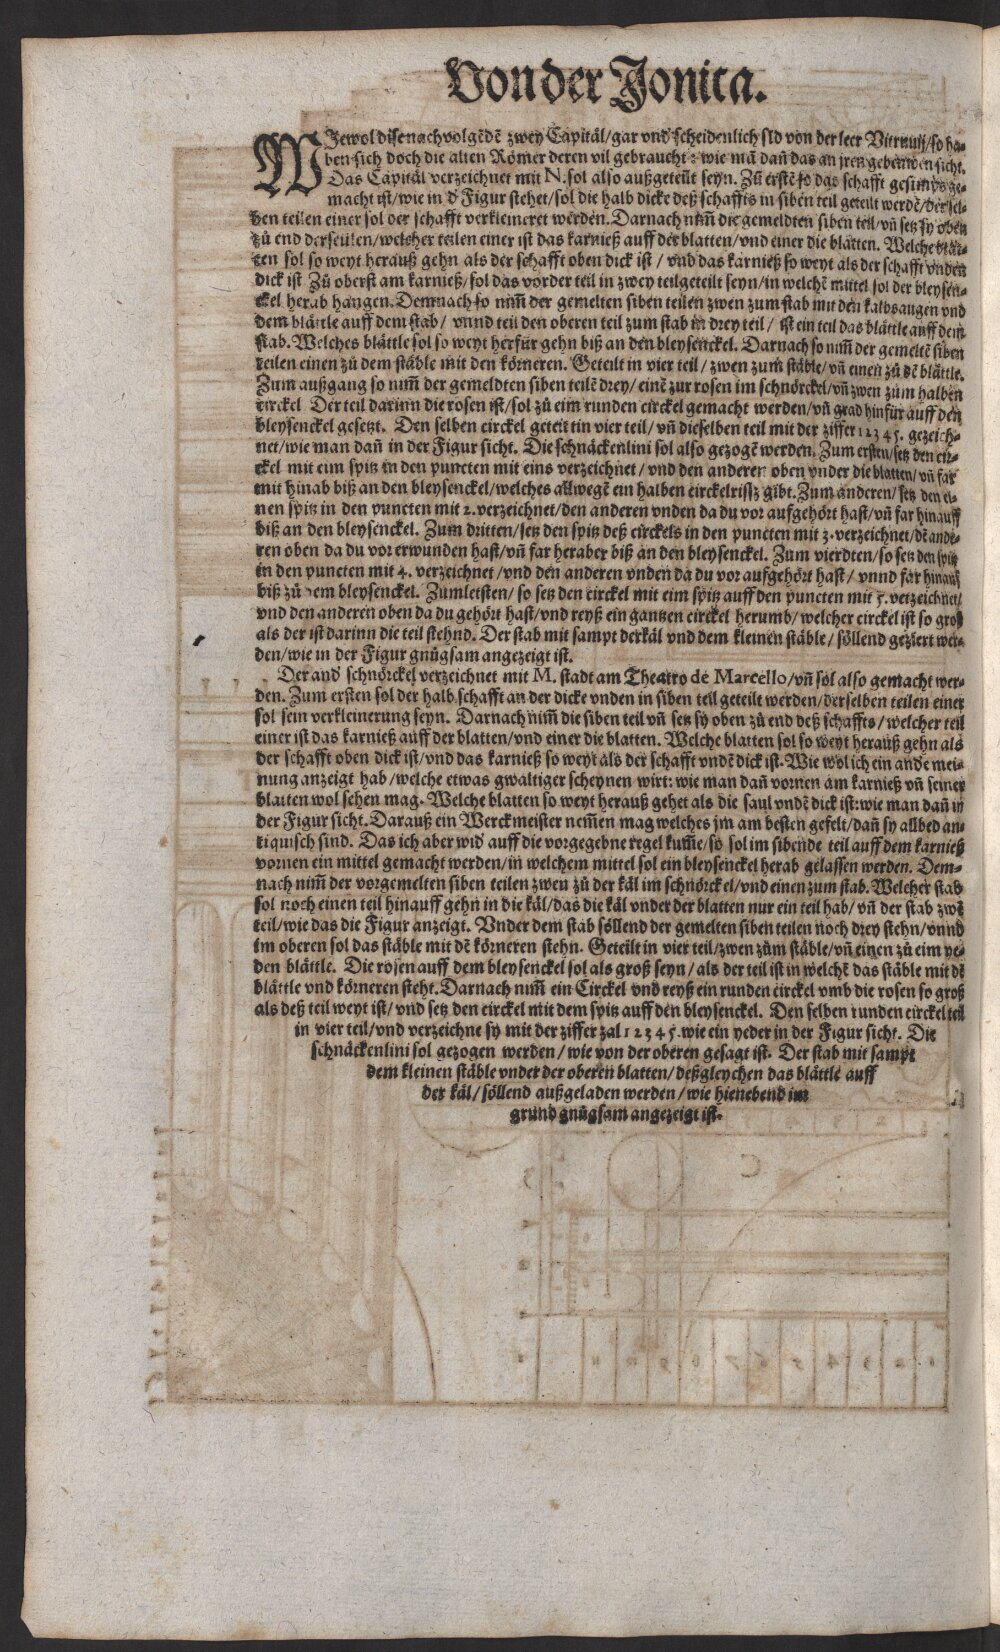 Von der Jonica.
WJewol dise nachvolgēdē zwey Capitäl/gar vnd scheidenlich sīd von der leer Vitruuij/so ha-
ben sich doch die alten Römer deren vil gebraucht: wie mā dañ das an jren gebeüwen sicht.
Das Capitäl verzeichnet mit N. sol also außgeteilt seyn. Zů erstē so das schafft gesimps ge-
macht ist/wie in d Figur stehet/sol die halb dicke deß schaffts in siben teil geteilt werdē/der sel-
ben teilen einer sol der schafft verkleineret werden. Darnach nim̃ die gemeldten siben teil/vñ setz sy oben
zů end der seülen/welcher teilen einer ist das karnieß auff der blatten/vnd einer die blatten. Welche blat-
ten sol so weyt herauß gehn als der schafft oben dick ist / vnd das karnieß so weyt als der schafft vnden
dick ist Zů oberst am karnieß/sol das vorder teil in zwey teil geteilt seyn/in welchē mittel sol der bleysen-
ckel herab hangen. Demnach so nim̃ der gemelten siben teilen zwen zum stab mit den kalbsaugen vnd
dem blättle auff dem stab / vnnd teil den oberen teil zum stab in drey teil / ist ein teil das blättle auff dem
stab. Welches blättle sol so weyt herfür gehn biß an den bleysenckel. Darnach so nim̃ der gemeltē siben
teilen einen zů dem stäble mit den körneren. Geteilt in vier teil / zwen zum stäble/vñ einen zů dē blättle.
Zum außgang so nim̃ der gemeldten siben teilē drey/ einē zur rosen im schnörckel/vñ zwen zum halben
circkel Der teil darinn die rosen ist/sol zů eim runden circkel gemacht werden/vñ grad hinfür auff den
bleysenckel gesetzt. Den selben circkel geteilt in vier teil/ vñ dieselben teil mit der ziffer 1 2 3 4 5. gezeich-
net/wie man dañ in der Figur sicht. Die schnäckenlini sol also gezogē werden. Zum ersten/setz den cir-
ckel mit eim spitz in den puncten mit eins verzeichnet / vnd den anderen oben vnder die blatten/ vñ far
mit hinab biß an den bleysenckel/welches allwegē ein halben circkelriss gibt. Zum anderen/ setz den ei-
nen spitz in den puncten mit 2. verzeichnet/den anderen vnden da du vor aufgehört hast/vñ far hinauff
biß an den bleysenckel. Zum dritten/setz den spitz deß circkels in den puncten mit 3. verzeichnet/dē ande-
ren oben da du vor erwunden hast/vñ far heraber biß an den bleysenckel. Zum vierdten/so setz den spitz
in den puncten mit 4. verzeichnet /vnd den anderen vnden da du vor aufgehört hast / vnnd far hinauf
biß zů dem bleysenckel. Zum letsten/ so setz den circkel mit eim spitz auff den puncten mit 5. verzeichnet/
vnd den anderen oben da du gehört hast/vnd reyß ein gantzen circkel herumb/ welcher circkel ist so groß
als der ist darinn die teil stehnd. Der stab mit sampt der käl vnd dem kleinen stäble / söllend geziert wer-
den/wie in der Figur gnůgsam angezeigt ist.
Der and schnörckel verzeichnet mit M. stadt am Theatro de Marcello/vñ sol also gemacht wer-
den. Zum ersten sol der halb schafft an der dicke vnden in siben teil geteilt werden/derselben teilen einer
sol sein verkleinerung seyn. Darnach nim̃ die siben teil vñ setz sy oben zů end deß schaffts / welcher teil
einer ist das karnieß auff der blatten/vnd einer die blatten. Welche blatten sol so weyt herauß gehn als
der schafft oben dick ist/vnd das karnieß so weyt als der schafft vndē dick ist. Wie wol ich ein andē mei-
nung anzeigt hab /welche etwas gwaltiger scheynen wirt: wie man dañ vornen am karnieß vñ seiner
blatten wol sehen mag. Welche blatten so weyt herauß gehet als die saul vndē dick ist: wie man dañ in
der Figur sicht. Darauß ein Werckmeister nem̃en mag welches jm am besten gefelt/dañ sy allbed an-
tiquisch sind. Das ich aber wid auff die vorgegebne regel kum̃e/so sol im sibende teil auff dem karnieß
vornen ein mittel gemacht werden/in welchem mittel sol ein bleysenckel herab gelassen werden. Dem-
nach nim̃ der vorgemelten siben teilen zwen zů der käl im schnörckel/vnd einen zum stab. Welcher stab
sol noch einen teil hinauff gehn in die käl/das die käl vnder der blatten nur ein teil hab/ vñ der stab zwē
teil/wie das die Figur anzeigt. Vnder dem stab söllend der gemelten siben teilen noch drey stehn/vnnd
im oberen sol das stäble mit dē körneren stehn. Geteilt in vier teil/zwen zům stäble/vñ einen zů eim ye-
den blättle. Die rosen auff dem bleysenckel sol als groß seyn / als der teil ist in welchē das stäble mit dē
blättle vnd körneren steht. Darnach nim̃ ein Circkel vnd reyß ein runden circkel vmb die rosen so groß
als deß teil weyt ist/ vnd setz den circkel mit dem spitz auff den bleysenckel. Den selben runden circkel teil
in vier teil/vnd verzeichne sy mit der ziffer zal 1 2 3 4 5. wie ein yeder in der Figur sicht. Die
schnäckenlini sol gezogen werden / wie von der oberen gesagt ist. Der stab mit sampt
dem kleinen stäble vnder der oberen blatten/ deßgleychen das blättle auff
der käl/ söllend außgeladen werden/ wie hienebend im
grund gnůgsam angezeigt ist.